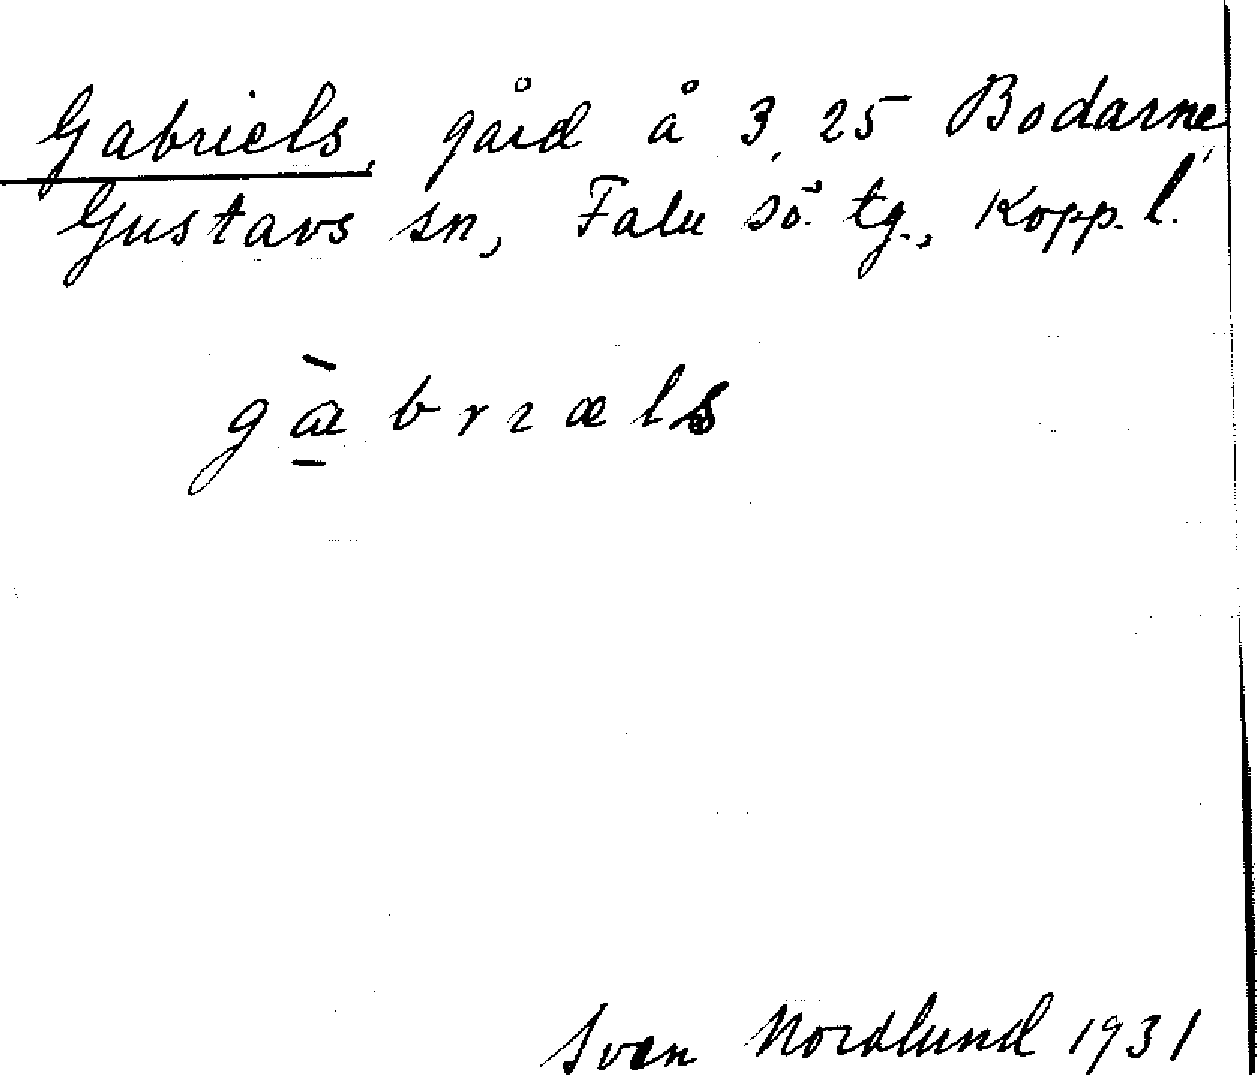 Gabriels, gård å 3, 25 Bodarne,
Gustavs sn, Falu sö. tg., Kopp. l.
gæ̀brıæls
Sven Nordlund 1931